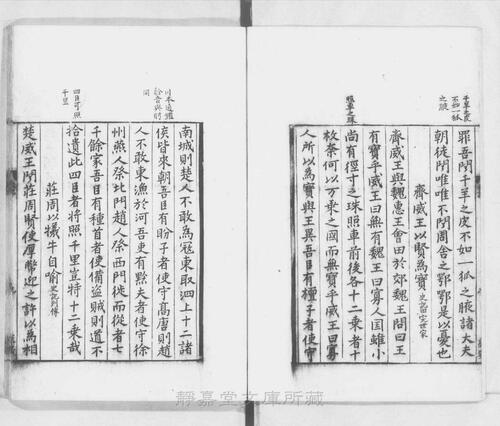 罪吾聞千羊之皮不如一狐之腋諸大夫
朝徒聞唯唯不聞周舍之鄂鄂是以憂也
齊威王以賢為寶
齊威王與魏惠王會田於郊魏王問曰王
有寶乎威王曰無有魏王曰寡人国雖小
尚有徑寸之珠照車前後各十二乘者十
枚柰何以万乘之國而無寶乎威王曰寡
人所以為寶與王異吾臣有檀子者使守
南城則楚人不敢為冦東取泗上十二諸
侯皆来朝吾臣有盼子者使守高唐則趙
人不敢東漁於河吾吏有黔夫者使守徐
州燕人祭北門趙人祭西門徙而從者七
千餘家吾臣有種首者使備盗賊則道不
拾遺此四臣者将照千里豈特十二乘哉
莊周以犠牛自喻
楚威王聞莊周賢使厚幣迎之許以為相
千羊之皮
不如一狐
之腋
照車之珠
四臣可照
千里
靜嘉堂文庫所蔵